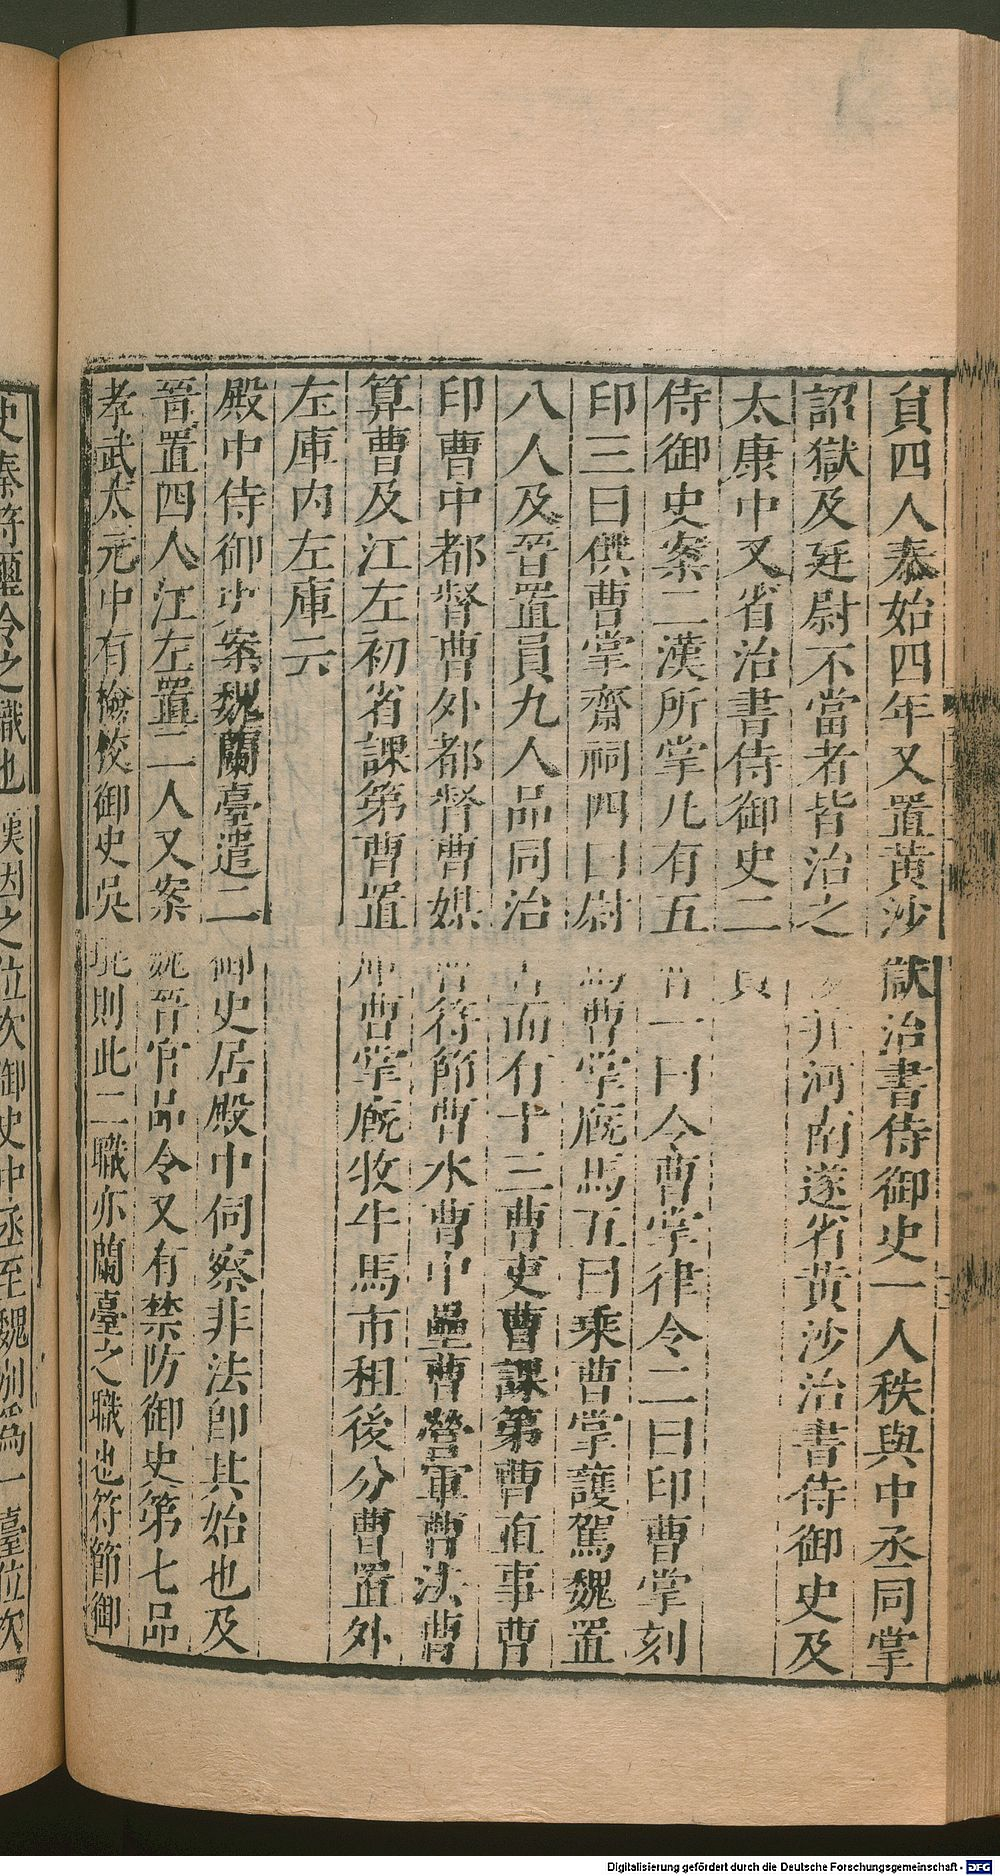 員四人泰始四年又置黄沙獄治書侍御史一人秩與中丞同掌
詔獄及廷尉不當者皆治之後并河南遂省黄沙治書侍御史及
太康中又省治書侍御史二員
侍御史案二漢所掌凡有五曹一曰令曹掌律令二曰印曹掌刻
印三曰供曹掌齋祠四曰尉馬曹掌廐馬五曰乘曹掌護駕魏置
八人及晉置員九人品同治書而有十三曹吏曹課第曹直事曹
印曹中都督曹外都督曹媒曹符節曹水曹中壘曹營軍曹法曹
算曹及江左初省課第曹置庫曹掌廐牧牛馬市租後分曹置外
左庫内左庫云
殿中侍御史案魏蘭臺遣二御史居殿中伺察非法卽其始也及
晉置四人江左置二人又案魏晉官品令又有禁防御史第七品
孝武太元中有檢校御史吳琨則此二職亦蘭臺之職也符節御
史秦符璽令之職也漢因之位次御史中丞至魏別爲一臺位次
Digitalisierung gefördert durch die Deutsche Forschungsgemeinschaft - DFG